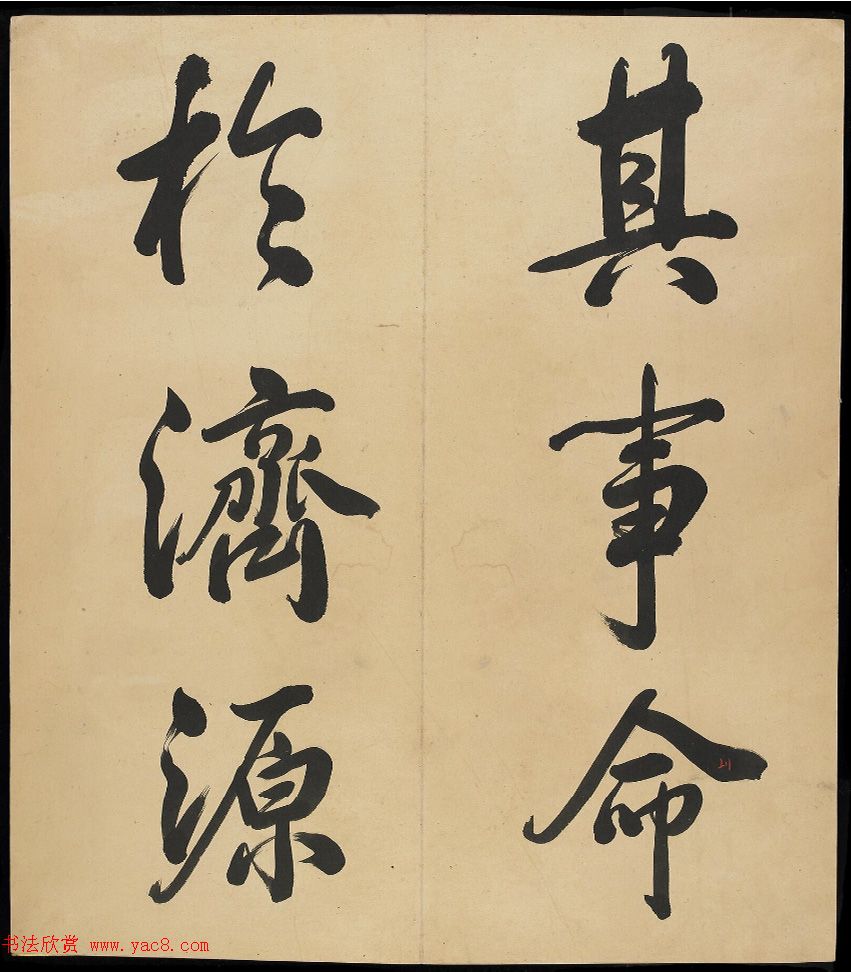 其事命
於濟源
书法欣赏 www.yac8.com